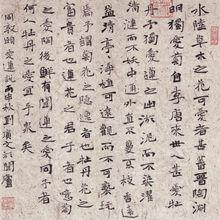 水陸草木之花可愛者甚蕃晉陶淵
明獨愛菊自李唐來世人甚愛牡
丹予獨愛蓮之出淤泥而不染濯
清漣而不妖中通外直不蔓不枝香遠
益清亭亭淨植可遠觀而不可褻玩
焉予謂菊花之隱逸者也牡丹花之
富貴者也蓮花之君子者也噫菊
之愛陶後鮮有聞蓮之愛同予者
何人牡丹之愛宜乎眾矣
周敦頤愛蓮說丙申秋劉文於